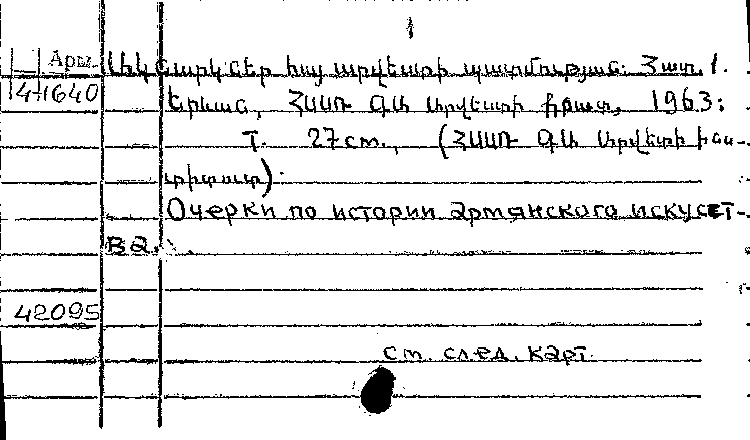 1
Арм. Ակնարկներ հայ արվեստի պատմության: Հատ. 1.
4-1640 Երևան, ՀՍՍՌ ԳԱ Արվեստի ինստ., 1963:
т. 27 cm., (ՀՍՍՌ ԳԱ Արվեստի ինս-
տիտուտ):
Очерки по истории армянского искусст-
ва.
42095
см. след. карт.